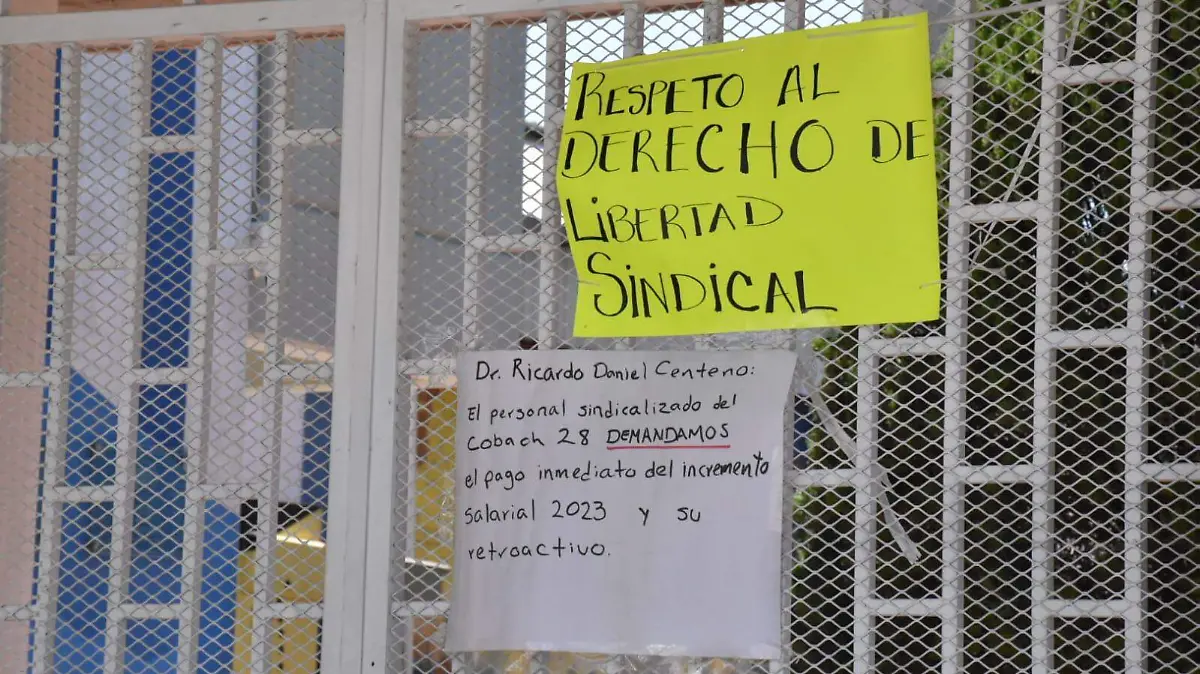 RESPETO AL
DERECHO DE
LIBERTAD
SINDICAL
Dr. Ricardo Daniel Centeno:
El personal sindicalizado del
Cobach 28 DEMANDAMOS
el pago inmediato del incremento
salarial 2023 y su
retroactivo.